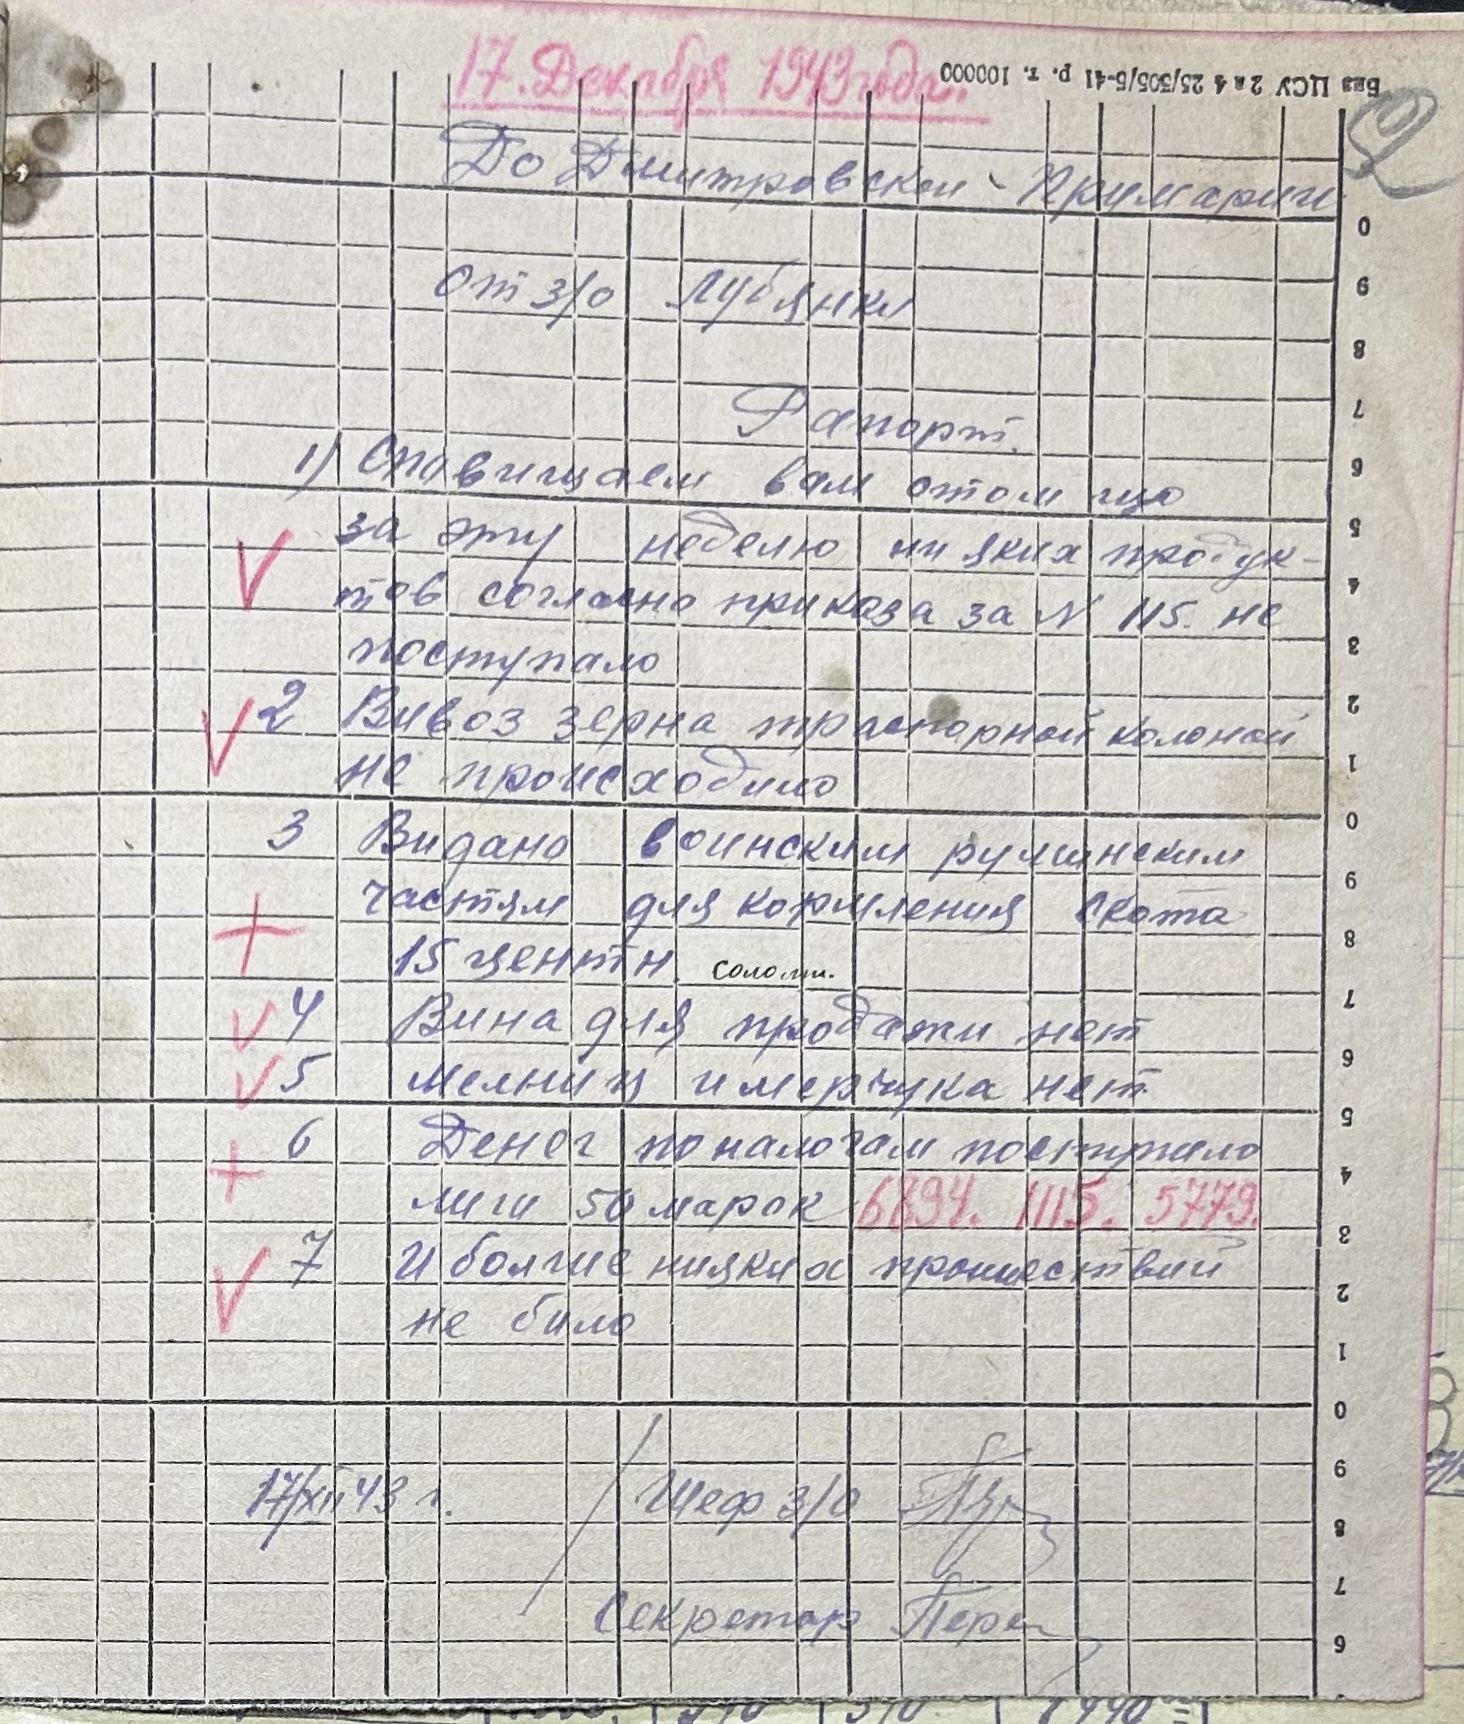 17. Декабря 1943 года.
Бла ЦСУ 2 в 4 25/505/5-41 р. т. 100000
2
До Дмитровской Примарии
от з/о Лубянка
Рапорт.
1) Сповищаем вам отом що
за эту неделю ни яких продук-
тов согласно приказа за N 115. не
поступало
2 Вивоз зерна транспорной колоной
не происходило
3 Видано воинским румынским
частям для кормления скота
15 центн. соломи.
4 Вина для продажи нет
5 Мелниц и мерчука нет
6 Денег по налогам поступило
лиги 50 марок 6894. 1115. 5779.
7 И болше нияких проишествий
не било
17/XII 43 г. Шеф з/о
Секретар
0
9
8
7
6
5
4
3
2
1
0
9
8
7
6
5
4
3
2
1
0
9
8
7
6